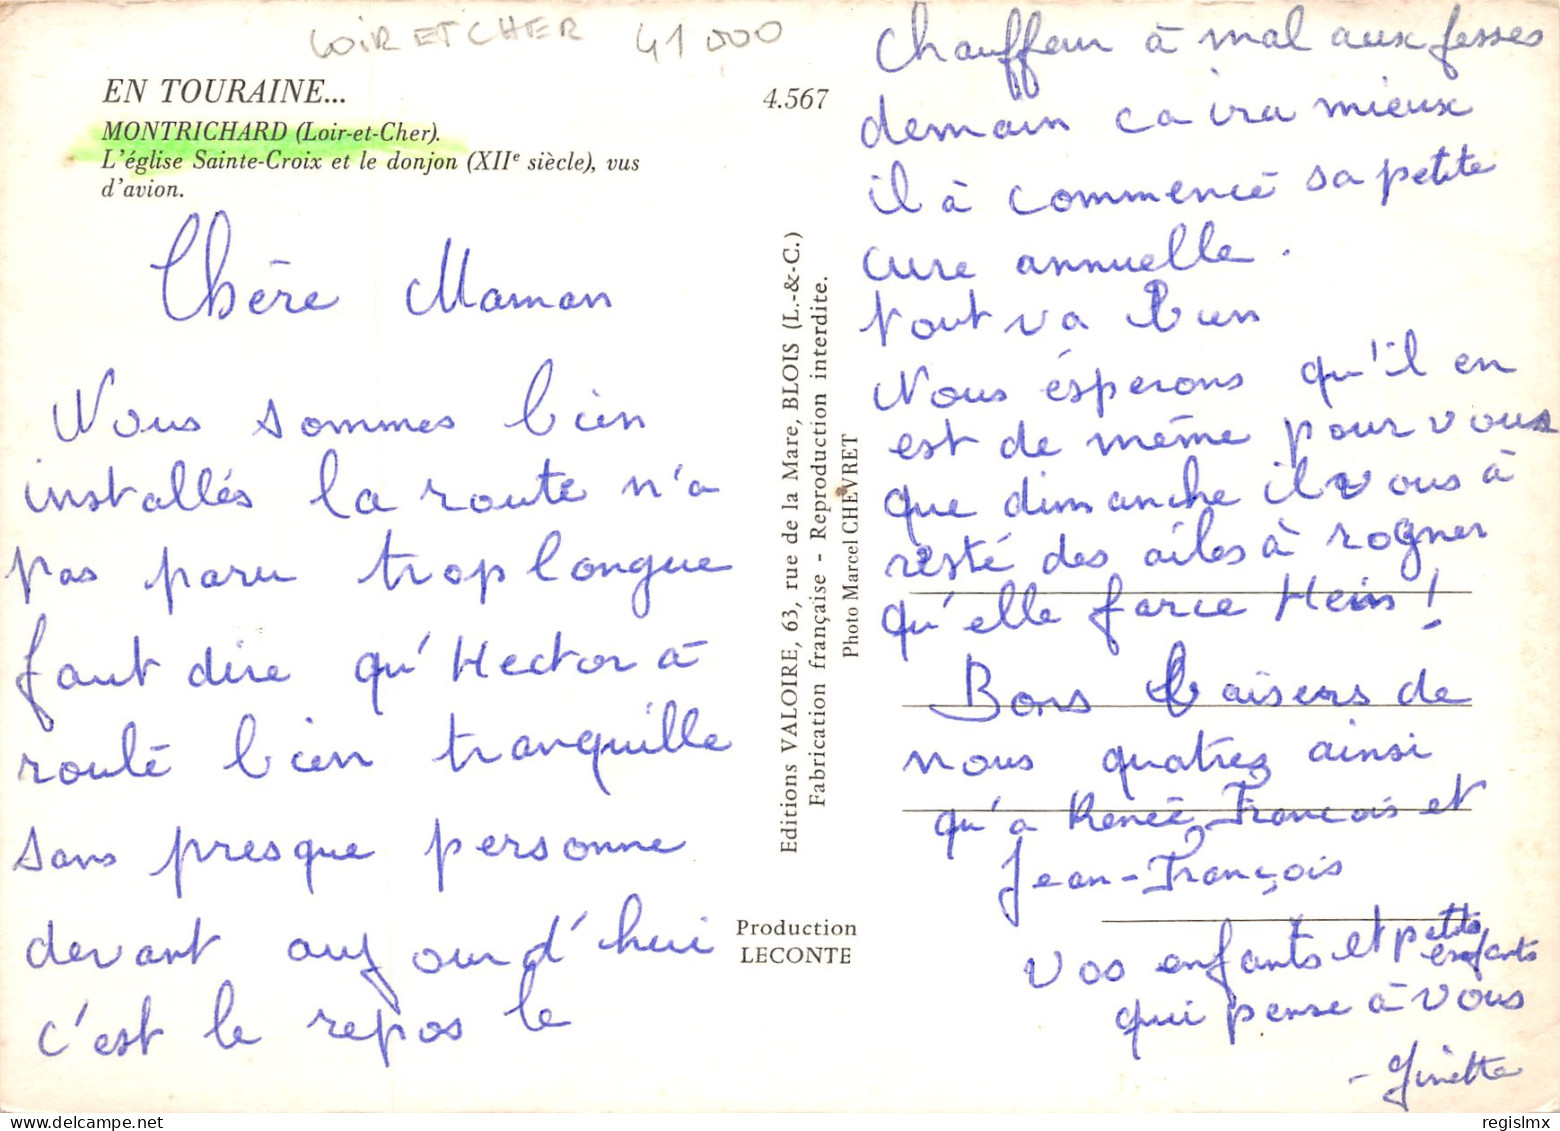 LOIR ET CHER 41000
EN TOURAINE...
4.567
MONTRICHARD (Loir-et-Cher).
L'église Sainte-Croix et le donjon (XIIe siècle), vus
d'avion.
Chère Maman
Nous sommes bien
installés la route n'a
pas paru trop longue
faut dire qu'Hector à
roulé bien tranquille
sans presque personne
devant aujourd'hui
c'est le repos le
Editions VALOIRE, 63, rue de la Mare, BLOIS (L.-&-C.)
Fabrication française - Reproduction interdite.
Photo Marcel CHEVRET
Production
LECONTE
Chauffeur à mal aux fesses
demain ca ira mieux
il à commencé sa petite
cure annuelle.
tout va bien
Nous ésperons qu'il en
est de même pour vous
que dimanche il vous à
resté des ailes à rogner
qu'elle farce Hein !
Bons baisers de
nous quatres ainsi
qu'a Renée, François et
Jean-François
Vos enfants et petits
enfants
qui pense à vous
- Ginette
regislmx